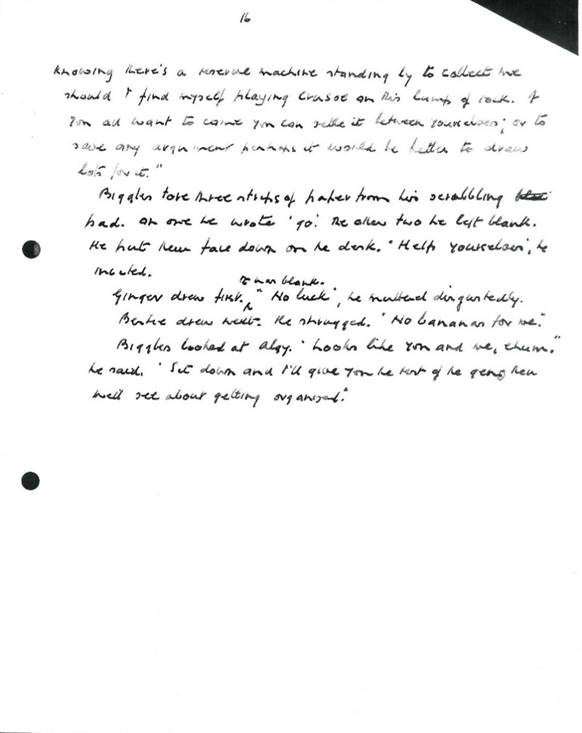 16
knowing there's a rescue machine standing by to collect me
should I find myself playing Crusoe on this lump of rock. If
you all want to come you can settle it between yourselves; or to
save any argument perhaps it would be better to draw
lots for it."
Biggles tore three strips of paper from his scrabbling
pad. On one he wrote 'go'. The other two he left blank.
He put them face down on the desk. "Help yourselves", he
invited.
It was blank.
Ginger drew first. "No luck", he muttered disgustedly.
Bertie drew next. He shrugged. "No bananas for me."
Biggles looked at Algy. "Looks like you and me, chum."
he said. "Sit down and I'll give you the rest of the gen; then
we'll see about getting organised."